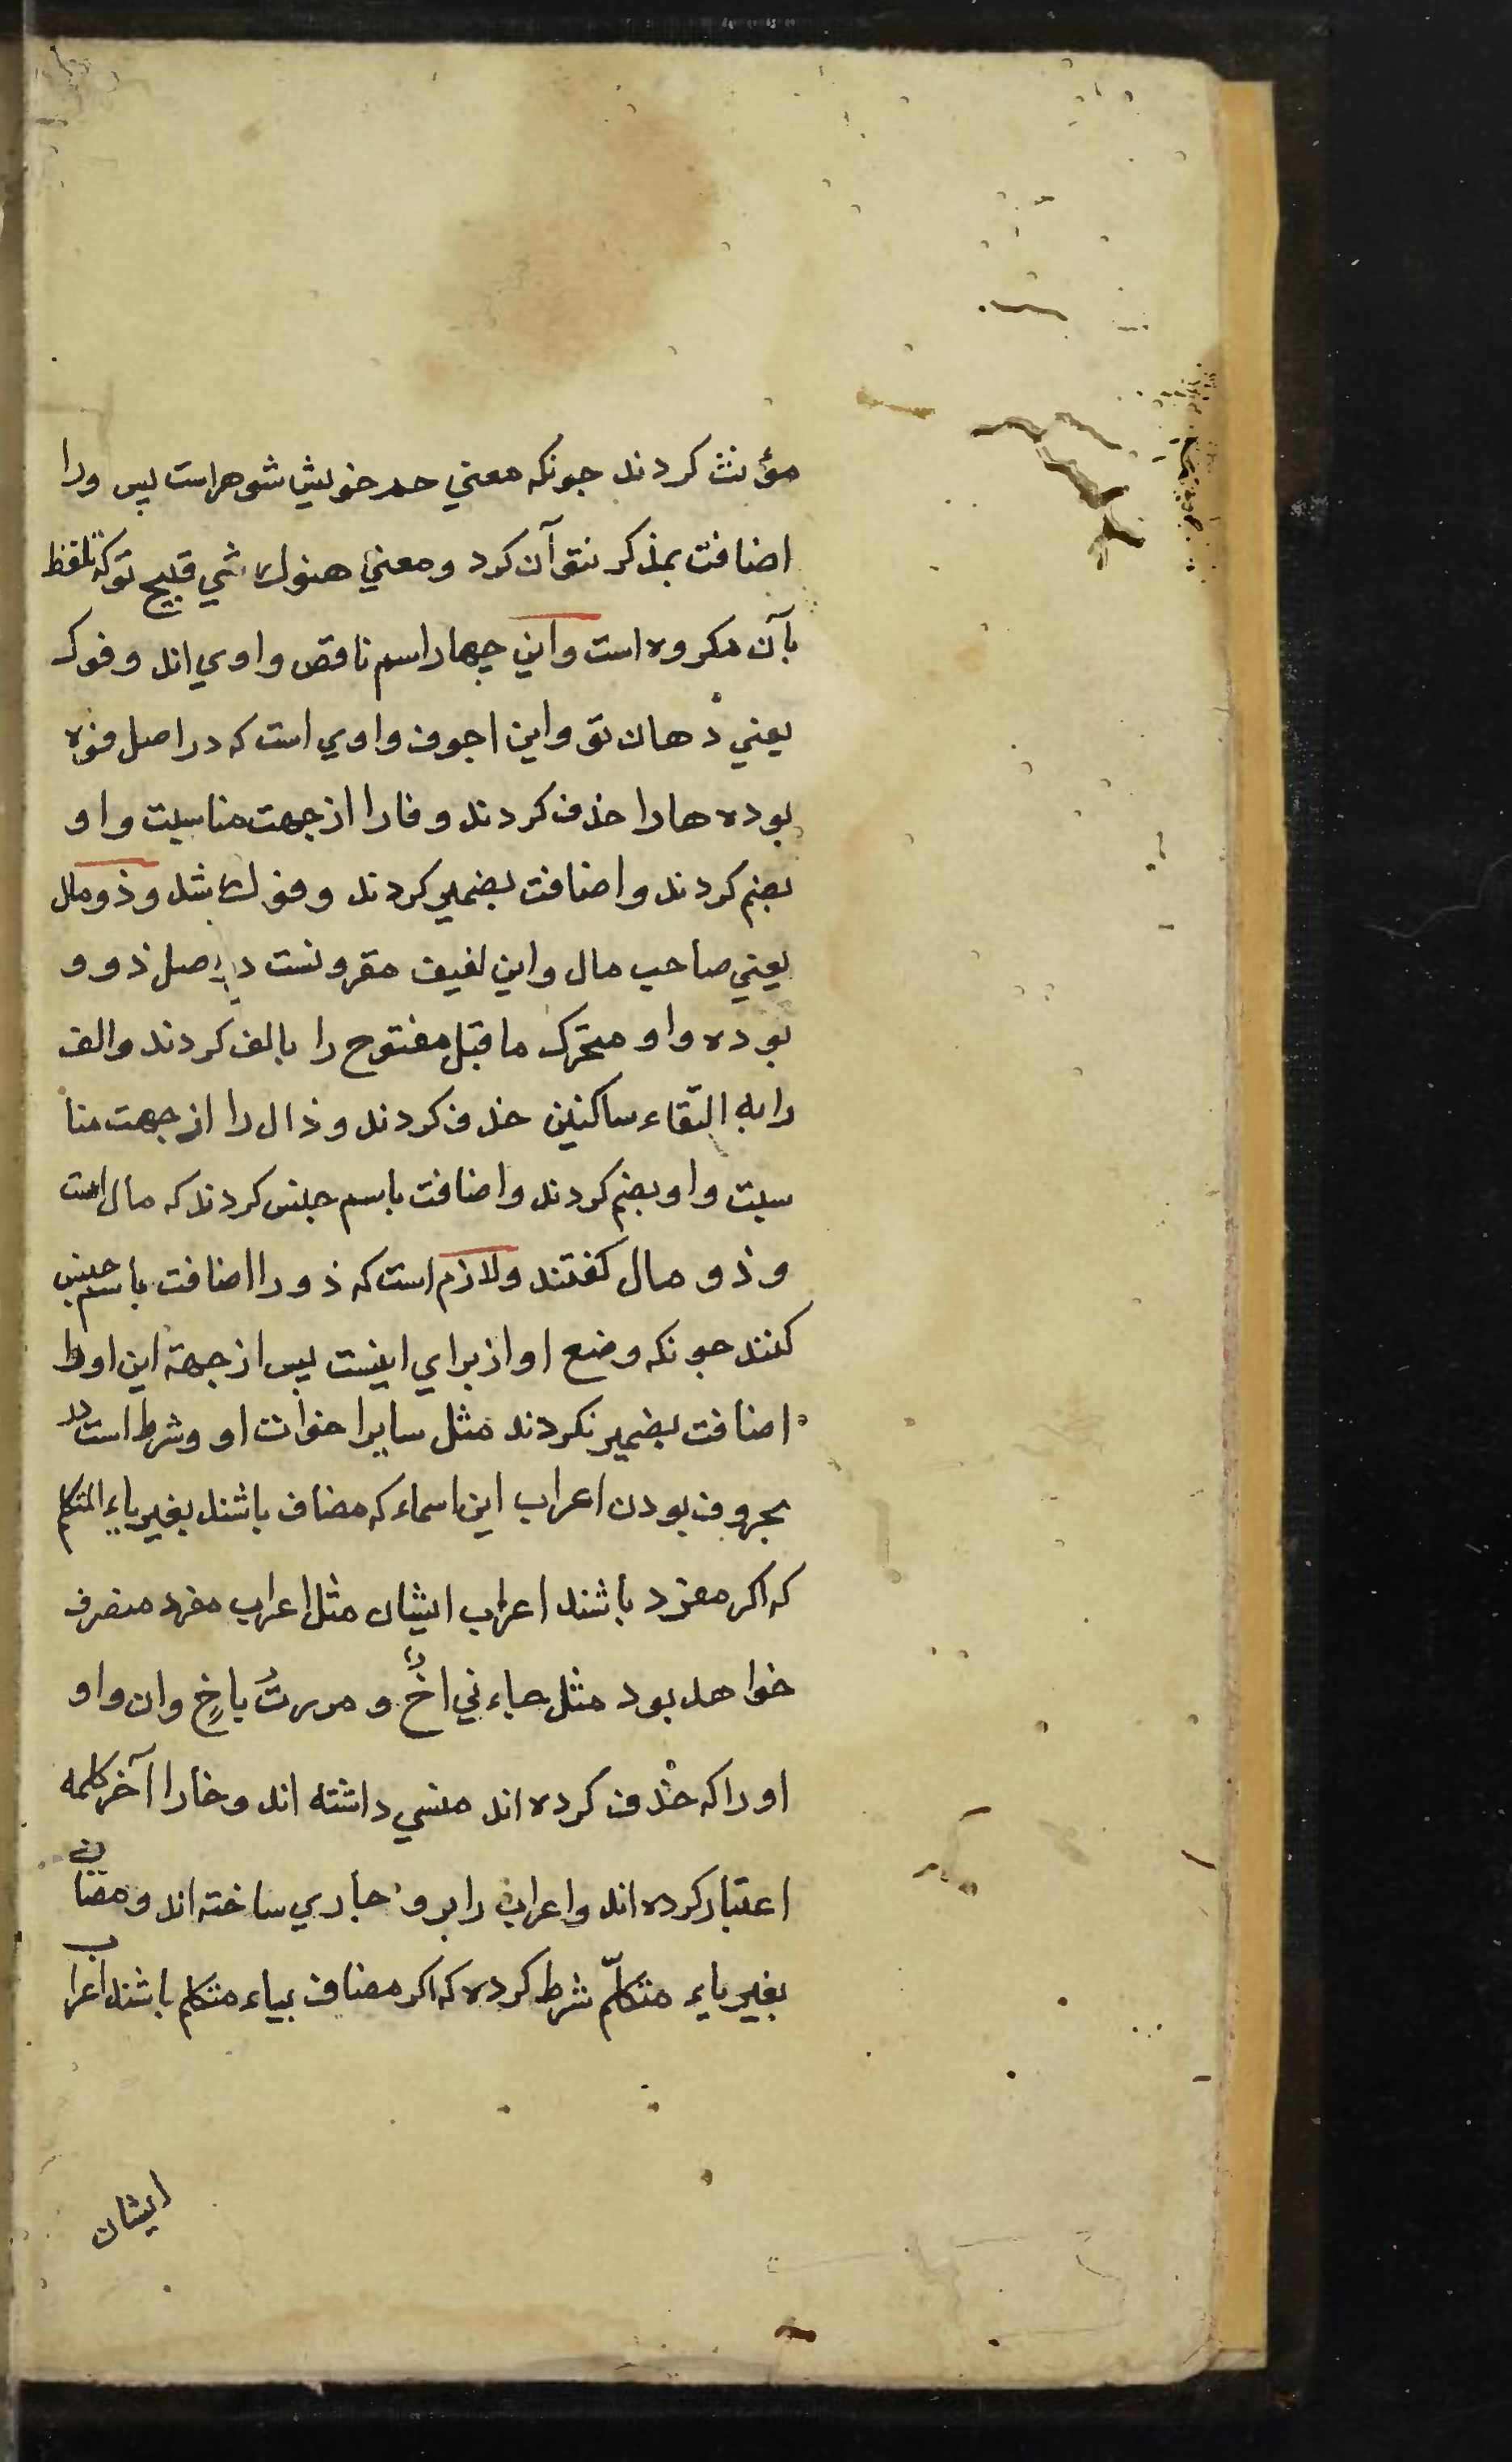 مؤنث کردند جونکه معني حمر خویش شوهراست پس ورا
اضافت بمذکر نتوآن کرد ومعني هنوك شي قبیح توکه تلفظ
بآن مکروه است واین چهار اسم ناقص واوي اند وفوك
یعني دهان تو واین اجوف واوي است که در اصل فوه
بوده هارا حذف کردند وفارا از جهت مناسبت واو
بضم کردند واضافت بضمیر کردند وفوك شد وذومال
یعني صاحب مال واین لفیف مقرونست در اصل ذوو
بوده واو متحرّك ماقبل مفتوح را بالف کردند والف
رابه التقاء ساکنین حذف کردند وذال را از جهت منا
سبت واو بضم کردند واضافت باسم جنس کردند که مال است
وذو مال کفتند ولازم است که ذو را اضافت باسم جنس
کنند جونکه وضع او از براي اینست پس از جهة این اورا
اضافت بضمیر نکردند مثل سایر اخوات او وشرط است در
بحروف بودن اعراب این اسماء که مضاف باشند بغیر یاء المتکلم
که اکر مفرد باشند اعراب ایشان مثل اعراب مفرد منصرف
خواهد بود مثل جاءني اخٌ و مررتُ باخٍ وان واو
اوراکه حذف کرده اند منسي داشته اند وخارا آخر کلمه
اعتبار کرده اند واعراب رابرو جاري ساخته اند ومضاف
بغیر یاء متکلّم شرط کرده که اکر مضاف بیاء متکلم باشند اعراب
ایشان